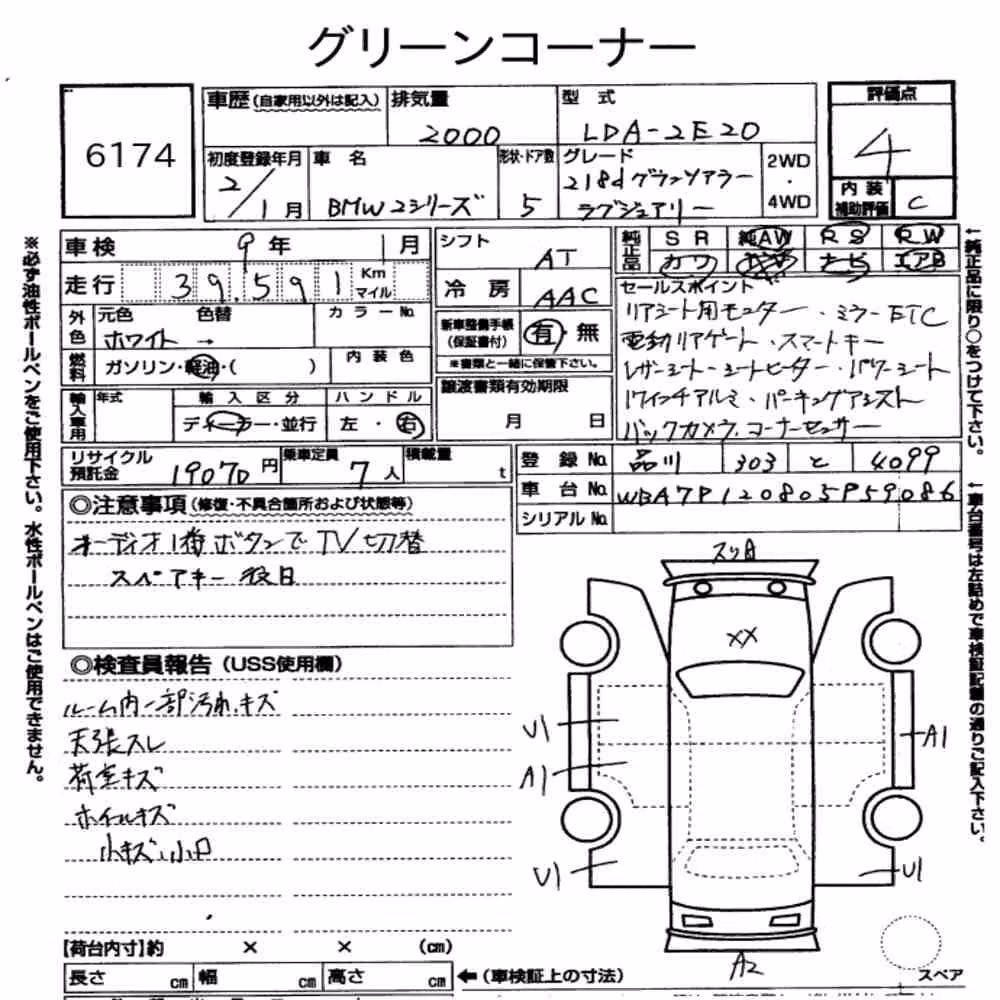 グリーンコーナー
6174
車歴(自家用以外は記入)
排気量
2000
型式
LDA-2E20
評価点
4
初度登録年月
2/1月
車名
BMW2シリーズ
形状・ドア数
5
グレード
218dグランツアラー
ラグジュアリー
2WD
・
4WD
内装
補助評価
C
車検 9年 1月
走行 39.591 Km
マイル
外色
元色 色替
ホワイト →
カラーNo.
燃料
ガソリン・軽油・( )
内装色
輸入車用
年式
輸入区分
ディーラー・並行
ハンドル
左・右
シフト
AT
冷房
AAC
新車整備手帳
(保証書付)
有・無
※書類と一緒に保管下さい。
譲渡書類有効期限
月 日
純正品
SR 純AW RS RW
カワ ナビ エアB
セールスポイント
リアシート用モニター・ミラーETC
電動リアゲート・スマートキー
レザーシート・シートヒーター・パワーシート
17インチアルミ・パーキングアシスト
バックカメラ.コーナーセンサー
リサイクル
預託金
19070円
乗車定員
7人
積載量
t
登録No. 品川 303 と 4099
車台No. WBA7P120805P59086
シリアルNo.
◎注意事項(修復・不具合箇所および状態等)
オーディオ1番ボタンでTV切替
スペアキー後日
◎検査員報告(USS使用欄)
ルーム内一部汚れ.キズ
天張スレ
荷室キズ
ホイールキズ
小キズ.小凹
スリ凹
XX
U1
A1
A1
U1
U1
A2
スペア
【荷台内寸】約 × × (cm)
長さ cm 幅 cm 高さ cm
←(車検証上の寸法)
※必ず油性ボールペンをご使用下さい。水性ボールペンはご使用できません。
←純正品に限り○をつけて下さい。
←車台番号は左詰めで車検証記載の通りご記入下さい。